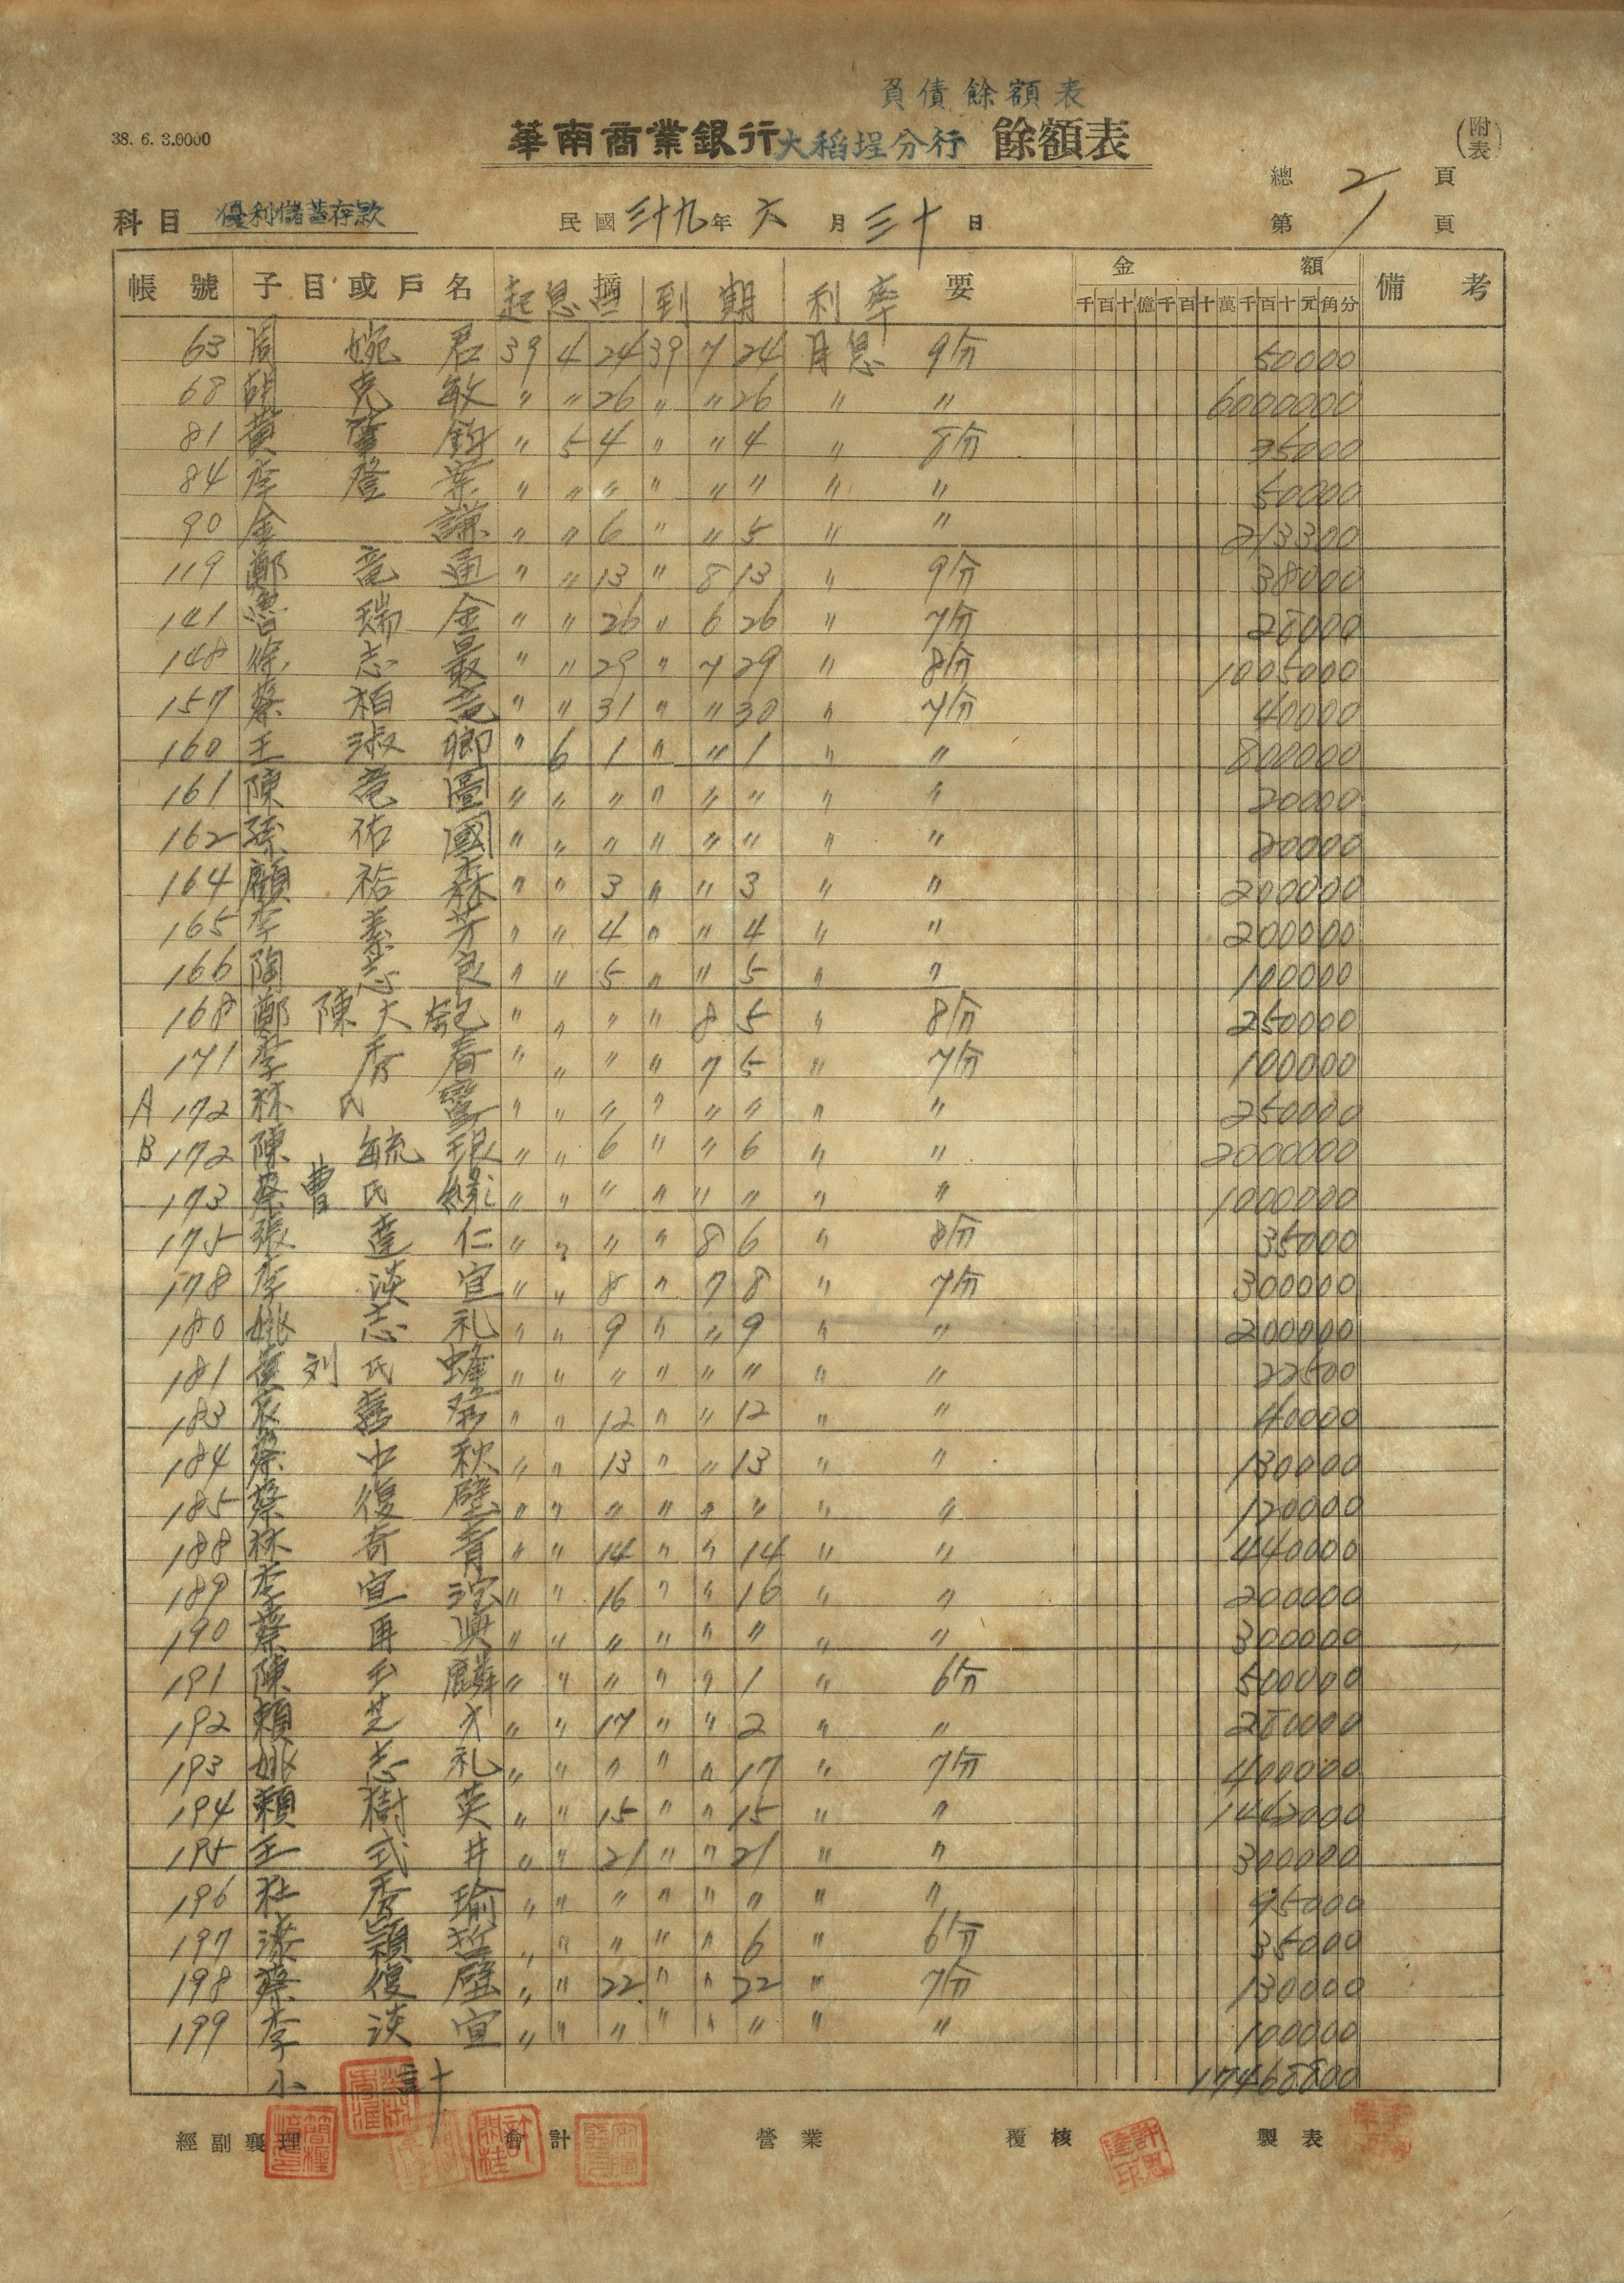 負債餘額表
38. 6. 3.0000
華南商業銀行大稻埕分行 餘額表
(附表)
總 2 頁
科目 優利儲蓄存款 民國三十九年六月三十日 第 1 頁
帳號 子目或戶名 摘要 金額 備考
起息 到期 利率 千百十億千百十萬千百十元角分
63 周婉君 39 4 24 39 7 24 月息 9分 50000
68 胡克敏 〃 〃 26 〃 〃 26 〃 〃 6000000
81 黃 〃 5 4 〃 〃 4 〃 8分 35000
84 李登 〃 〃 〃 〃 〃 〃 〃 〃 50000
90 金謙 〃 〃 6 〃 〃 5 〃 〃 213300
119 鄭竜通 〃 〃 13 〃 8 13 〃 9分 38000
141 瑞金 〃 〃 26 〃 6 26 〃 7分 28000
148 徐志最 〃 〃 29 〃 7 29 〃 8分 1005000
157 蔡柏竜 〃 〃 31 〃 〃 30 〃 7分 40000
160 王淑卿 〃 6 1 〃 〃 1 〃 〃 800000
161 陳竜圖 〃 〃 〃 〃 〃 〃 〃 〃 20000
162 孫祐國 〃 〃 〃 〃 〃 〃 〃 〃 20000
164 顧裕森 〃 〃 3 〃 〃 3 〃 〃 200000
165 李素芳 〃 〃 4 〃 〃 4 〃 〃 200000
166 陶志良 〃 〃 5 〃 〃 5 〃 〃 100000
168 鄭陳大 〃 〃 〃 〃 8 5 〃 8分 250000
171 李秀春 〃 〃 〃 〃 7 5 〃 7分 100000
A 172 林氏 〃 〃 〃 〃 〃 〃 〃 〃 250000
B 172 陳毓琅 〃 〃 6 〃 〃 6 〃 〃 2000000
173 蔡曹氏緣 〃 〃 〃 〃 〃 〃 〃 〃 1000000
175 張達仁 〃 〃 〃 〃 8 6 〃 8分 35000
178 李淡宣 〃 〃 8 〃 7 8 〃 7分 300000
180 姚志礼 〃 〃 9 〃 〃 9 〃 〃 200000
181 黃刘氏蜂 〃 〃 〃 〃 〃 〃 〃 〃 22500
183 〃 〃 12 〃 〃 12 〃 〃 40000
184 蔡中秋 〃 〃 13 〃 〃 13 〃 〃 130000
185 蔡復壁 〃 〃 〃 〃 〃 〃 〃 〃 120000
188 林奇青 〃 〃 14 〃 〃 14 〃 〃 440000
189 李宣 〃 〃 16 〃 〃 16 〃 〃 200000
190 蔡再興 〃 〃 〃 〃 〃 〃 〃 〃 300000
191 陳玉麟 〃 〃 〃 〃 〃 1 〃 6分 500000
192 賴芝 〃 〃 17 〃 〃 2 〃 〃 280000
193 姚志礼 〃 〃 〃 〃 〃 17 〃 7分 400000
194 賴樹英 〃 〃 15 〃 〃 15 〃 〃 1462000
195 王式井 〃 〃 21 〃 〃 21 〃 〃 300000
196 杜秀瑜 〃 〃 〃 〃 〃 〃 〃 〃 95000
197 潘穎哲 〃 〃 〃 〃 〃 6 〃 6分 35000
198 蔡復壁 〃 〃 22 〃 〃 22 〃 7分 130000
199 李淡宣 〃 〃 〃 〃 〃 〃 〃 〃 100000
小計 17468800
經副襄理 會計 營業 覆核 製表